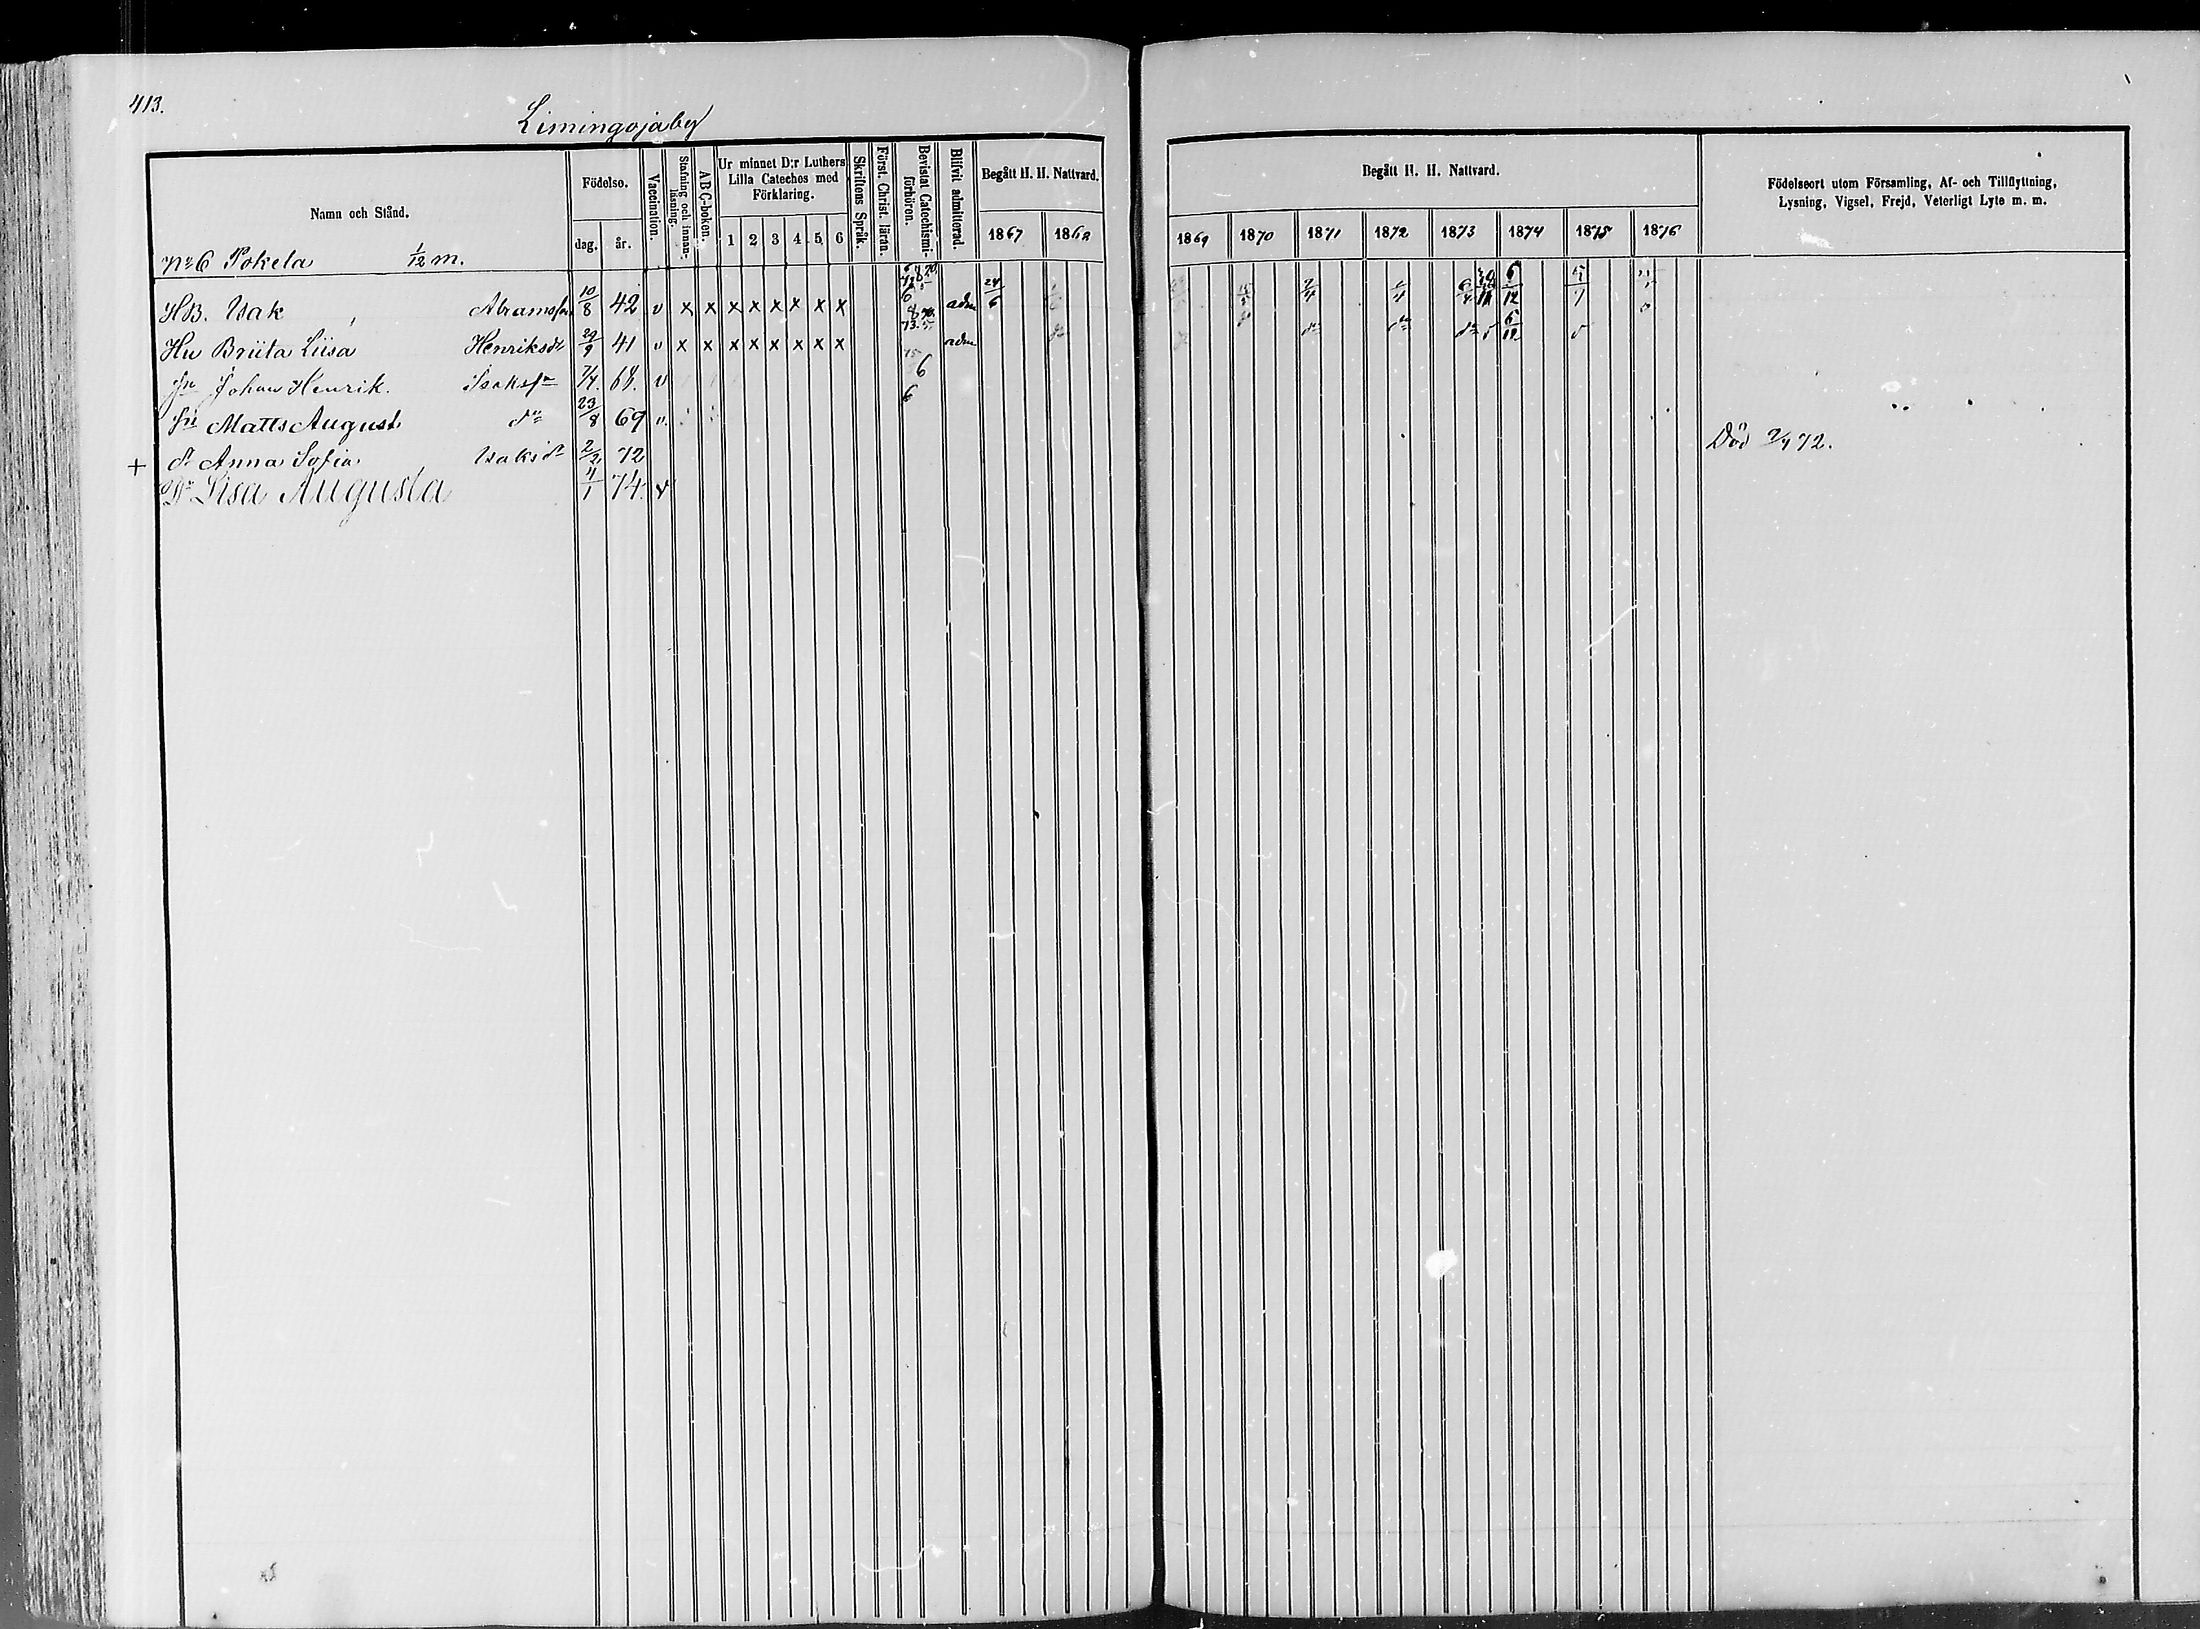 413.
Limingojaby
Namn och Stånd.
Födelse.
dag. år.
Vaccination.
Stafning och innan-läsning.
ABC-boken.
Ur minnet D:r Luthers
Lilla Cateches med
Förklaring.
1 2 3 4 5 6
Skriftens Språk.
Först. Christ. läran.
Bevistat Catechismi-förhören.
Blifvit admitterad.
Begått H. H. Nattvard.
1867 1868
Begått H. H. Nattvard.
1869 1870 1871 1872 1873 1874 1875 1876
Födelseort utom Församling, Af- och Tillflyttning,
Lysning, Vigsel, Frejd, Veterligt Lyte m. m.
No 6 Pokela 1/12 m.
HB. Isak Abramsson 10/8 42 v x x x x x x x x adm 24/6 2/4 6/4 6/12 5/7
Hu Briita Liisa Henriksdr 29/9 41 v x x x x x x x x adm do do do 6/12
Sn Johan Henrik Isakssn 7/4 68. v 6
Sn Matts August do 23/8 69 v. 6
+ dr Anna Sofia Isaksdr 2/2 72 Död 2/4 72.
Dr Lisa Augusta 4/1 74. v